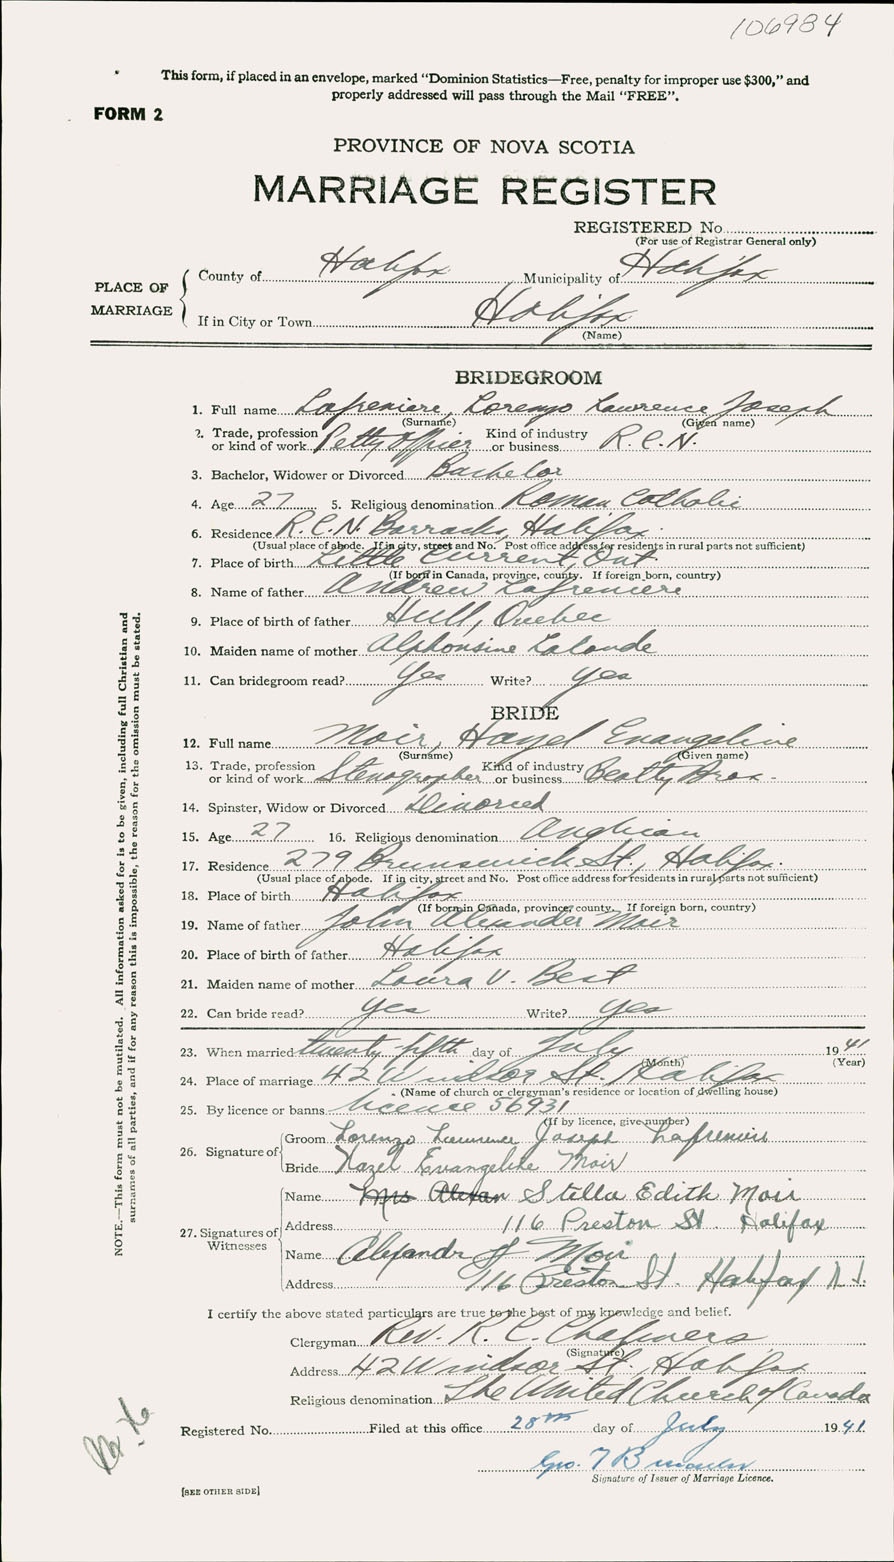 106984
This form, if placed in an envelope, marked “Dominion Statistics—Free, penalty for improper use $300,” and
properly addressed will pass through the Mail “FREE”.
FORM 2
PROVINCE OF NOVA SCOTIA
MARRIAGE REGISTER
REGISTERED No.
(For use of Registrar General only)
PLACE OF MARRIAGE
County of Halifax Municipality of Halifax
If in City or Town Halifax
(Name)
BRIDEGROOM
1. Full name Lafreniere, Lorenzo Lawrence Joseph
(Surname) (Given name)
2. Trade, profession or kind of work Petty Officer Kind of industry or business R.C.N.
3. Bachelor, Widower or Divorced Bachelor
4. Age 27 5. Religious denomination Roman Catholic
6. Residence R.C.N. Barracks, Halifax.
(Usual place of abode. If in city, street and No. Post office address for residents in rural parts not sufficient)
7. Place of birth Little Current, Ont
(If born in Canada, province, county. If foreign born, country)
8. Name of father Andrew Lafreniere
9. Place of birth of father Hull, Quebec
10. Maiden name of mother Alphonsine Lalonde
11. Can bridegroom read? Yes Write? Yes
BRIDE
12. Full name Moir, Hazel Evangeline
(Surname) (Given name)
13. Trade, profession or kind of work Stenographer Kind of industry or business Beatty Bros.
14. Spinster, Widow or Divorced Divorced
15. Age 27 16. Religious denomination Anglican
17. Residence 279 Brunswick St., Halifax.
(Usual place of abode. If in city, street and No. Post office address for residents in rural parts not sufficient)
18. Place of birth Halifax
(If born in Canada, province, county. If foreign born, country)
19. Name of father John Alexander Moir
20. Place of birth of father Halifax
21. Maiden name of mother Laura V. Best
22. Can bride read? Yes Write? Yes
23. When married twenty-fifth day of July 1941
(Month) (Year)
24. Place of marriage 42 Windsor St. Halifax
(Name of church or clergyman's residence or location of dwelling house)
25. By licence or banns licence 56931
(If by licence, give number)
26. Signature of
Groom Lorenzo Lawrence Joseph Lafreniere
Bride Hazel Evangeline Moir
27. Signatures of Witnesses
Name Mrs Stella Edith Moir
Address 116 Preston St. Halifax
Name Moir
Address 116 Preston St. Halifax N.S.
I certify the above stated particulars are true to the best of my knowledge and belief.
Clergyman Rev. R. C. Chalmers
(Signature)
Address 42 Windsor St., Halifax
Religious denomination The United Church of Canada
Registered No. Filed at this office 28th day of July 1941.
Geo.
Signature of Issuer of Marriage Licence.
[SEE OTHER SIDE]
NOTE.—This form must not be mutilated. All information asked for is to be given, including full Christian and
surnames of all parties, and if for any reason this is impossible, the reason for the omission must be stated.